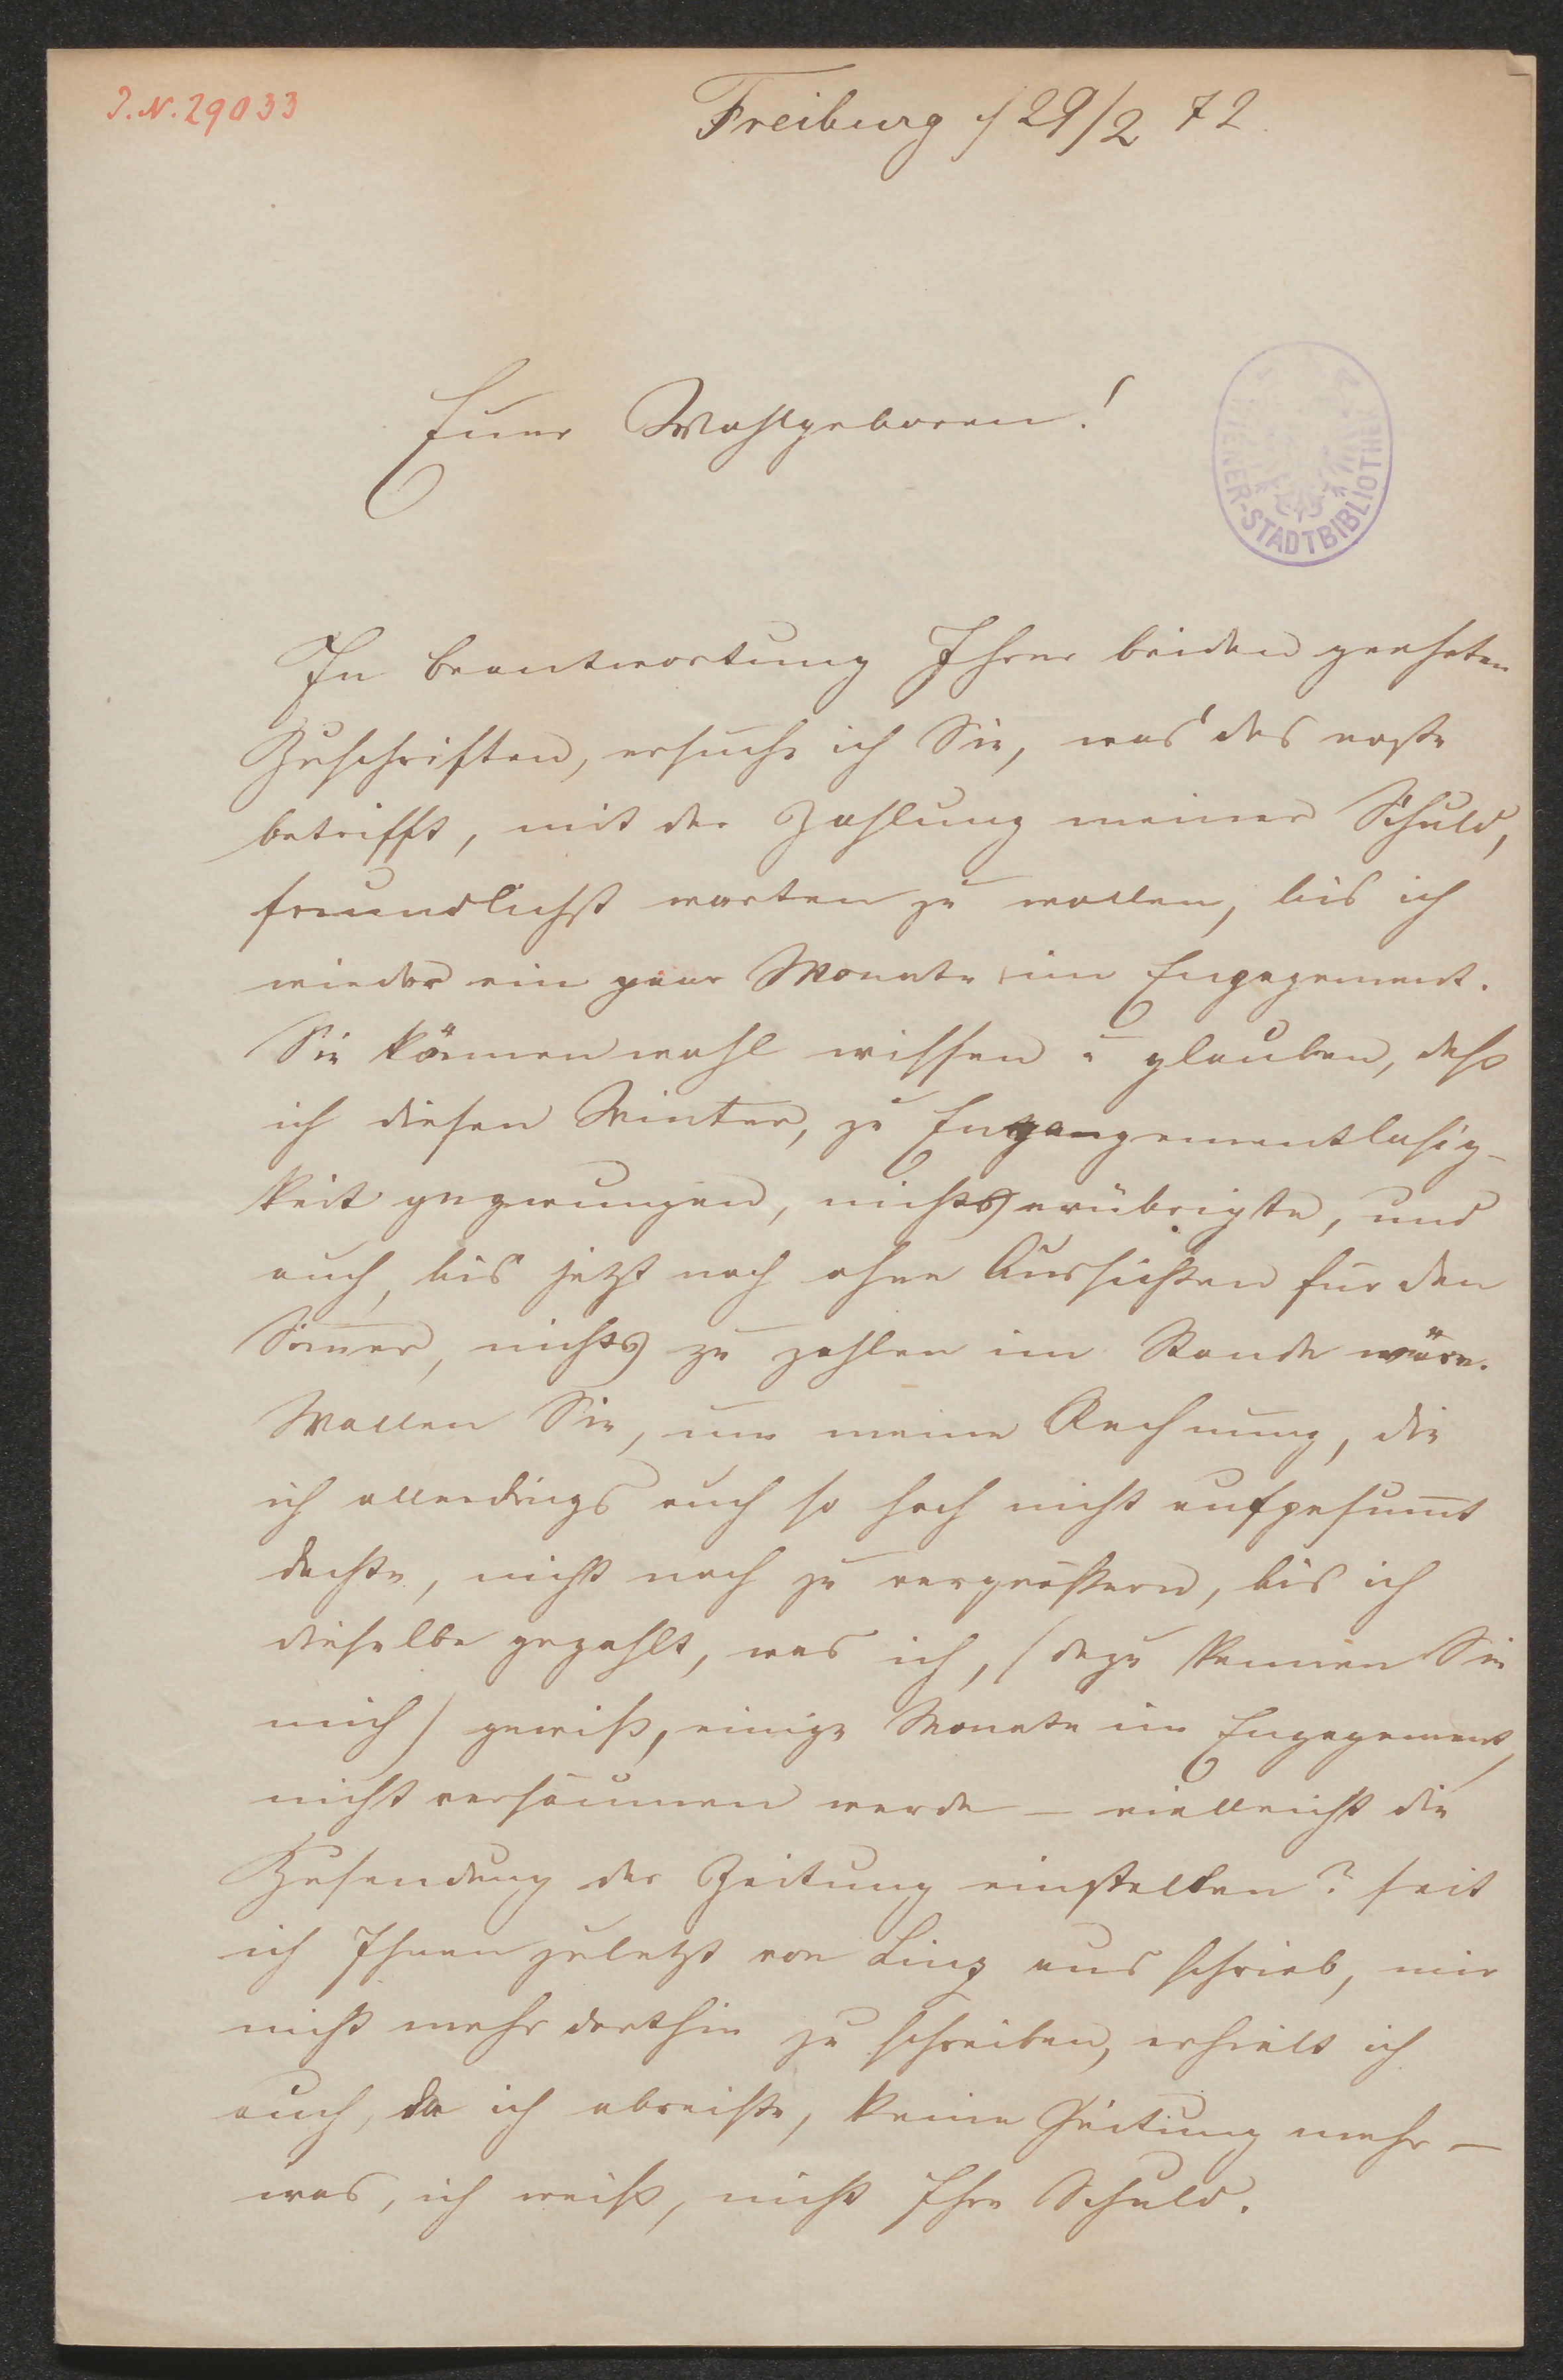 J. N. 29033
Freiburg / 29/2 72.
Euer Wohlgeboren!
WIENER-STADTBIBLIOTHEK
In beantwortung Ihrer beiden geehrten
Zuschriften, ersuche ich Sie, was das erste
betrifft, mit der Zahlung meiner Schuld,
freundlichst warten zu wollen, bis ich
wieder ein paar Monate im Engagement.
Sie können wohl wissen u glauben, daß
ich diesen Winter, zu Engangementlosig-
keit gezwungen, nichts erübrigte, und
auch, bis jetzt noch ohne Aussichten für den
Som̅er, nichts zu zahlen im Stande wäre.
Wollen Sie, um meine Rechnung, die
ich allerdings auch so hoch nicht aufgesum̅t
dachte, nicht noch zu vergrößern, bis ich
dieselbe gezahlt, was ich, (dazu kennen Sie
mich) gewiß, einige Monate im Engagement,
nicht versäumen werde – vielleicht die
Zusendung der Zeitung einstellen? seit
ich Ihnen zuletzt von Linz aus schrieb, mir
nicht mehr dorthin zu schreiben, erhielt ich
auch, da ich abreiste, keine Zeitung mehr –
was, ich weiß, nicht Ihre Schuld.